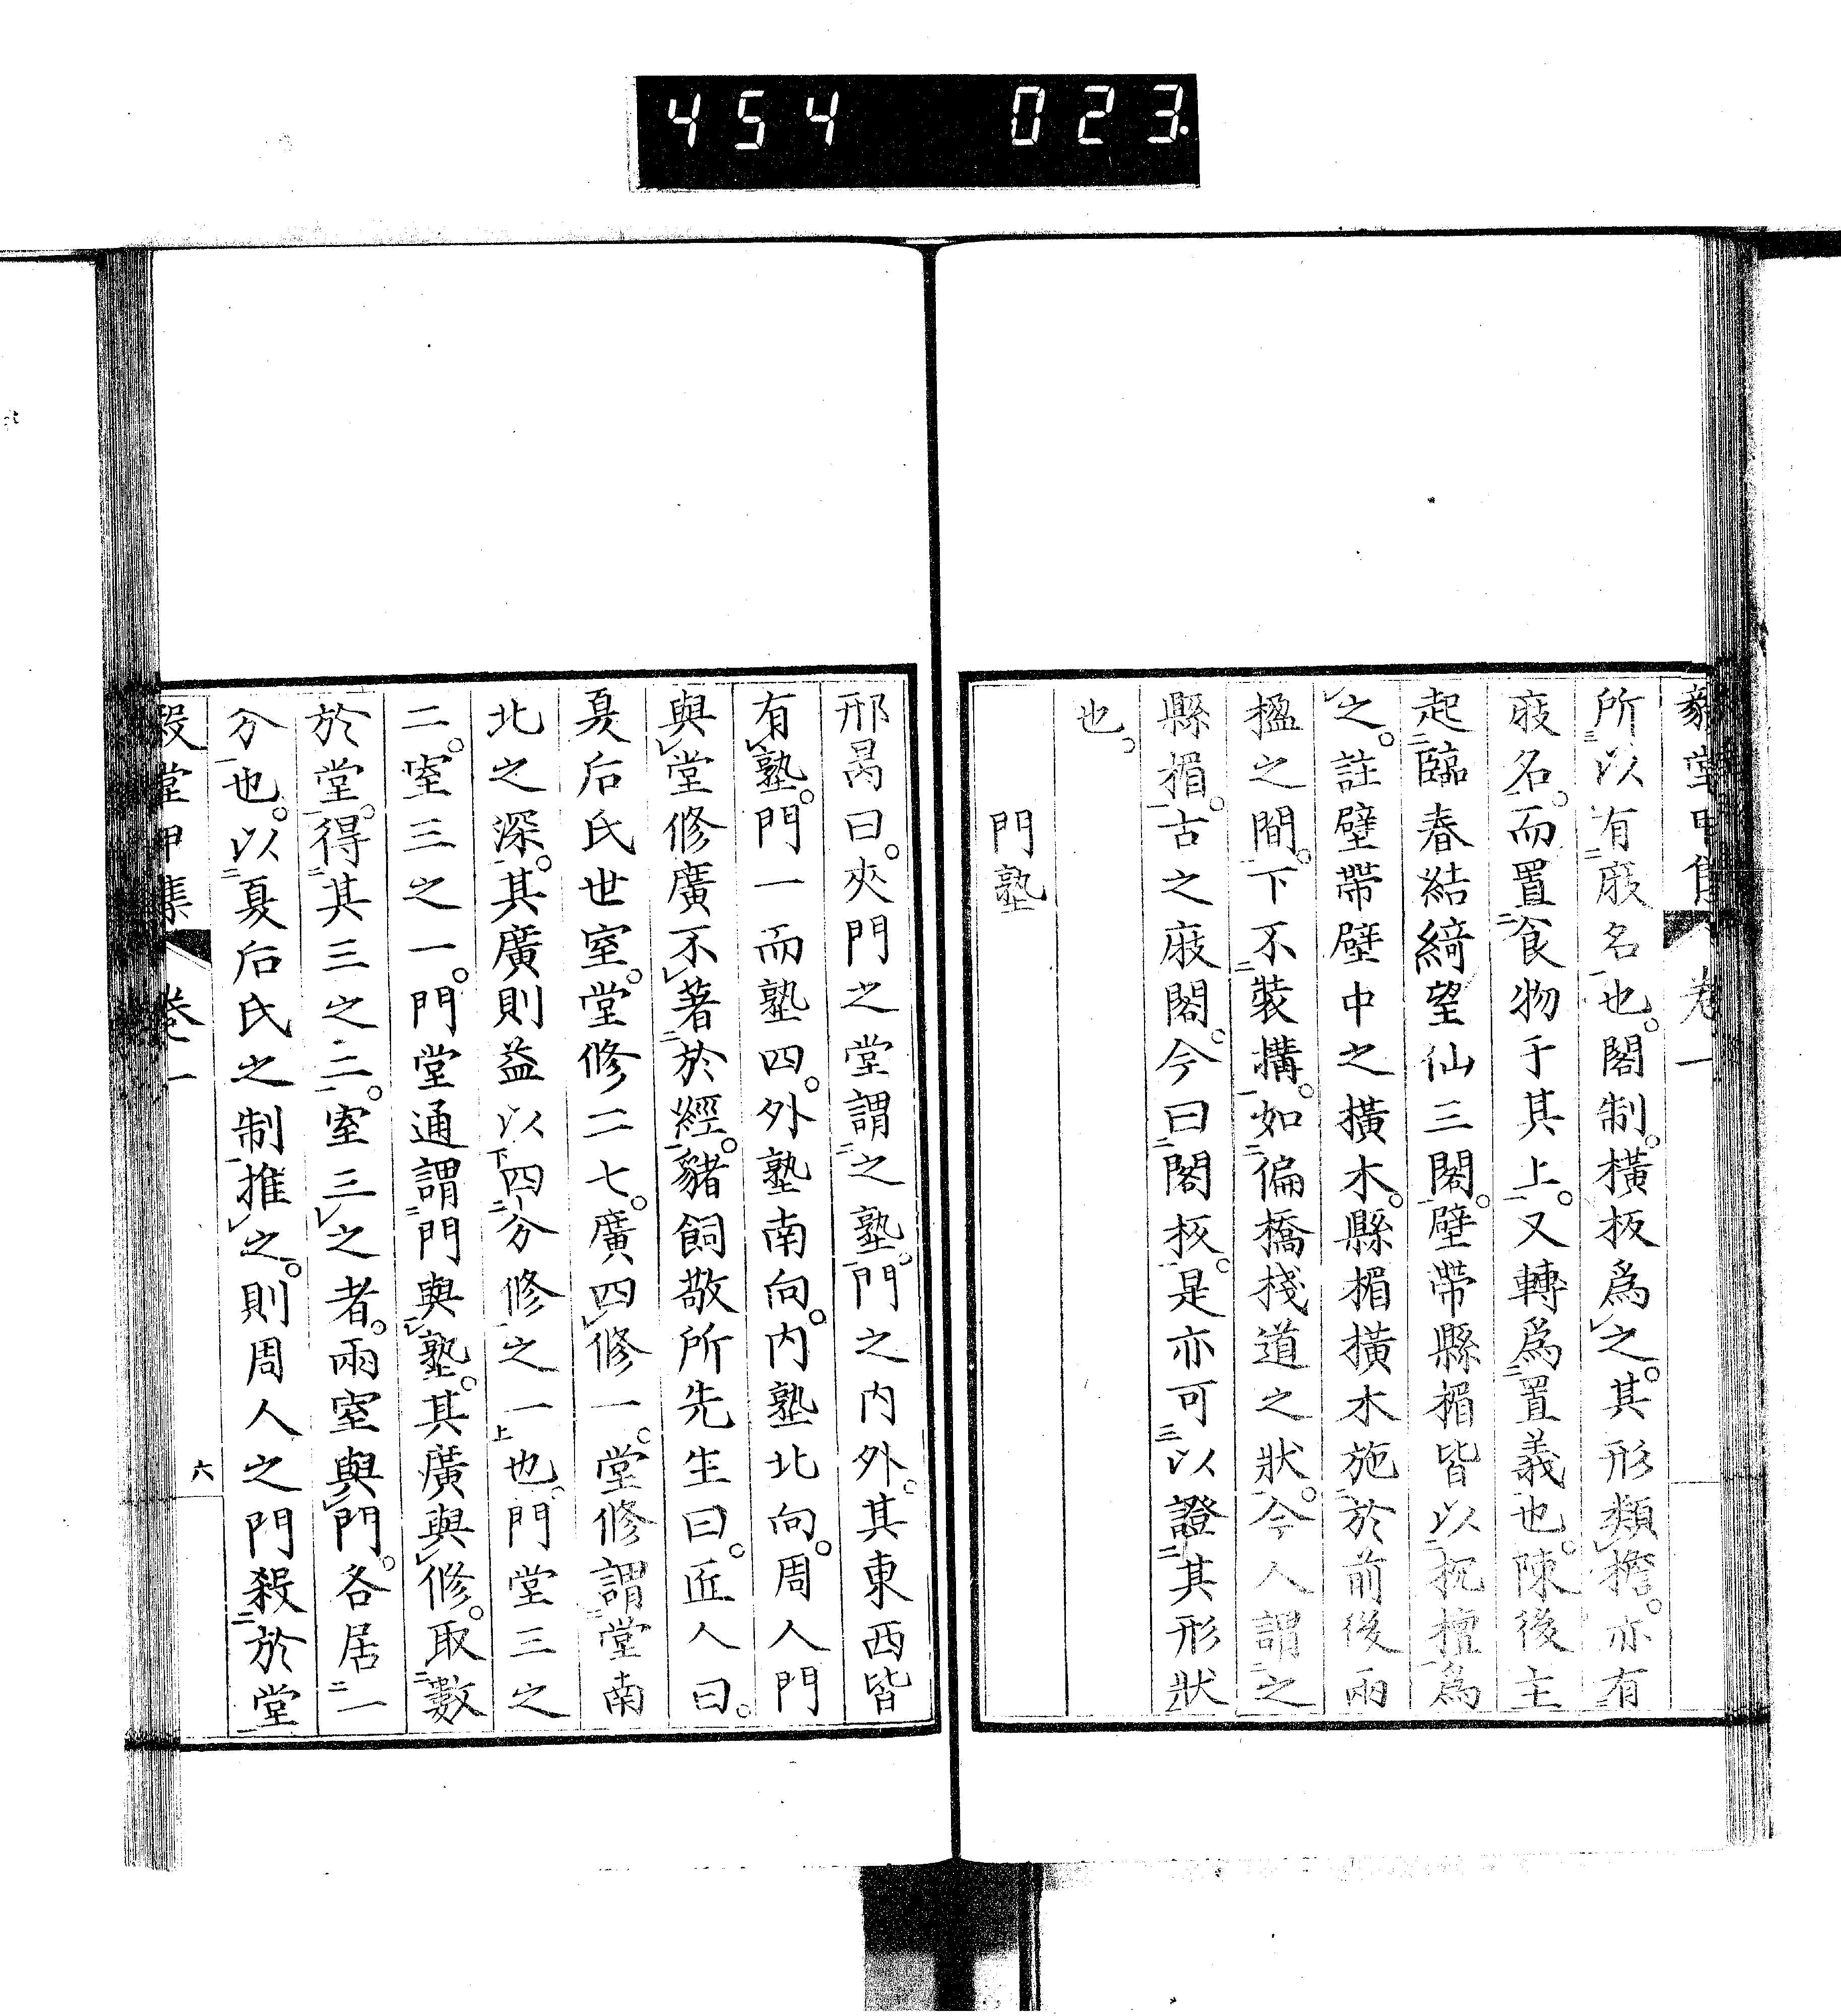 454 023.
毅堂甲集 卷一
所以有庪名也。閣制。橫板爲之。其形類擔。亦有
庪名。而置食物于其上。又轉爲置義也。陳後主
起臨春結綺望仙三閣。壁帶縣楣皆以抗檀爲
之。註壁帶壁中之橫木。縣楣橫木施於前後兩
楹之間。下不裝搆。如偏橋棧道之狀。今人謂之
縣楣。古之庪閣。今曰閣板。是亦可以證其形狀
也。
門塾
邢昺曰。夾門之堂謂之塾。門之内外。其東西皆
有塾。門一而塾四。外塾南向。内塾北向。周人門
與堂修廣不著於經。豬飼敬所先生曰。匠人曰。
夏后氏世室。堂修二七。廣四修一。堂修謂堂南
北之深。其廣則益以四分修之一也。門堂三之
二。室三之一。門堂通謂門與塾。其廣與修。取數
於堂。得其三之二。室三之者。兩室與門。各居一
分也。以夏后氏之制推之。則周人之門殺於堂
毅堂甲集 卷一 六